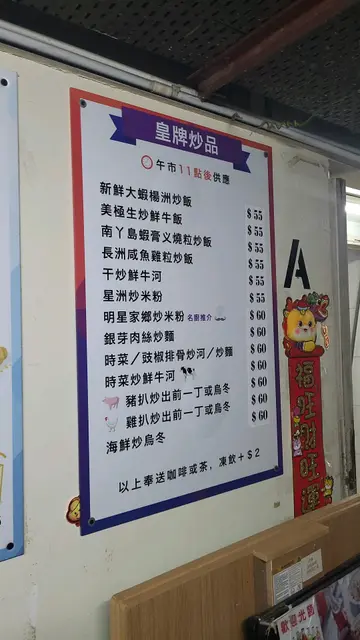 皇牌炒品
午市11點後供應
新鮮大蝦楊洲炒飯 $55
美極生炒鮮牛飯 $55
南丫島蝦膏义燒粒炒飯 $55
長洲咸魚雞粒炒飯 $55
干炒鮮牛河 $55
星洲炒米粉 $60
明星家鄉炒米粉 名廚推介 $60
銀芽肉絲炒麵 $60
時菜/豉椒排骨炒河/炒麵 $60
時菜炒鮮牛河 $60
豬扒炒出前一丁或烏冬 $60
雞扒炒出前一丁或烏冬
海鮮炒烏冬
以上奉送咖啡或茶,凍飲+$2
A
福旺財旺運
歡迎光臨